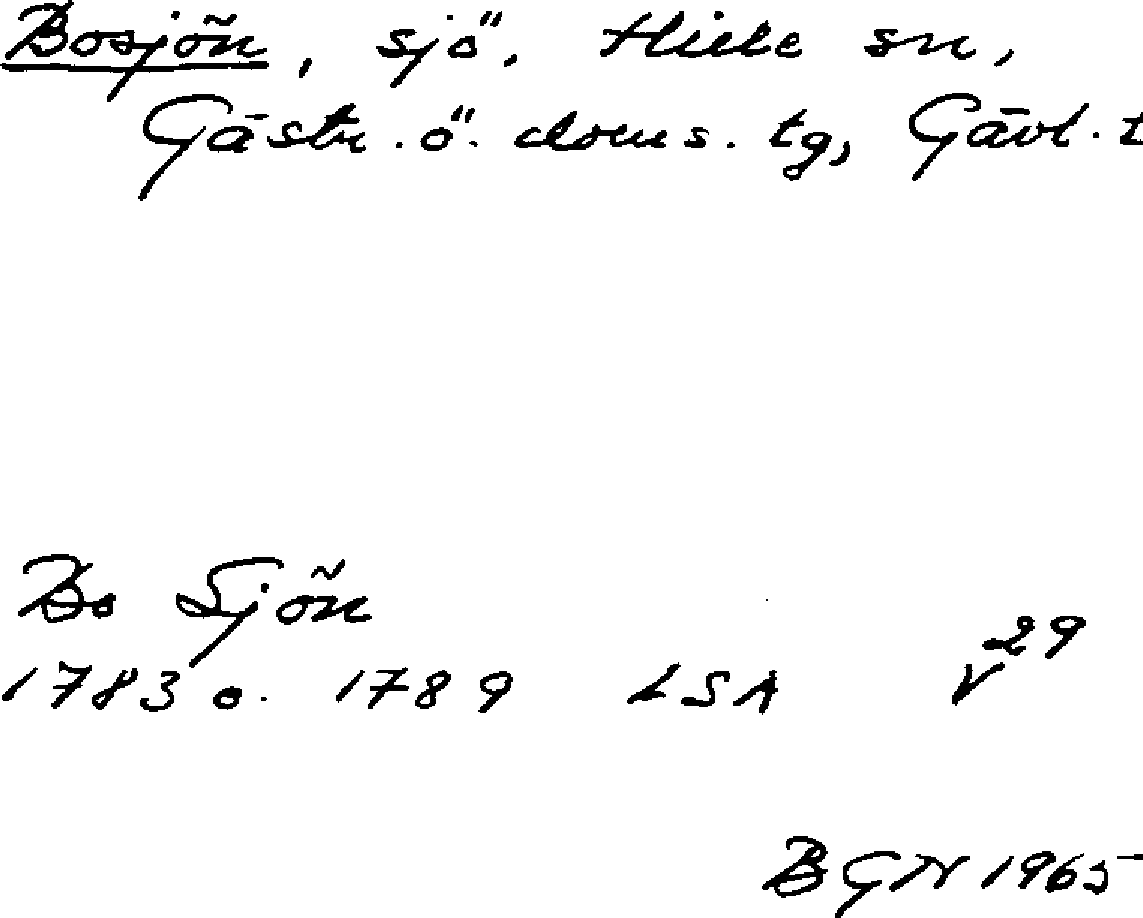 Bosjön, sjö, Hille sn,
Gästr. ö. doms. tg, Gävl. l
Bo Sjön
1783 o. 1789 LSA V 29
BGN 1965